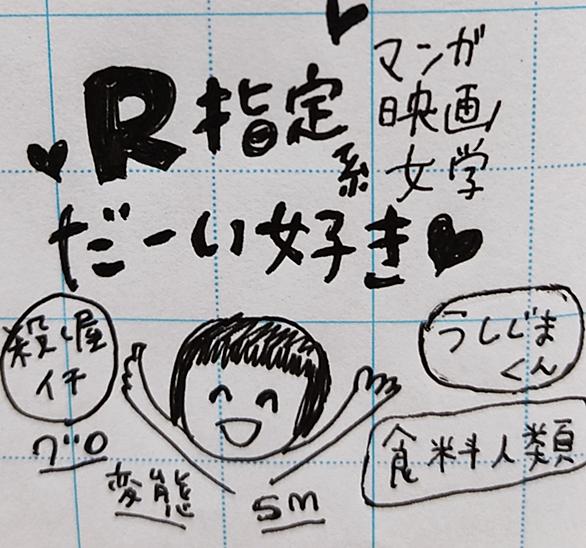 R指定系
マンガ
映画
女学
だーい好き
殺し屋
イチ
グロ
変態
SM
うしじま
くん
食料人類